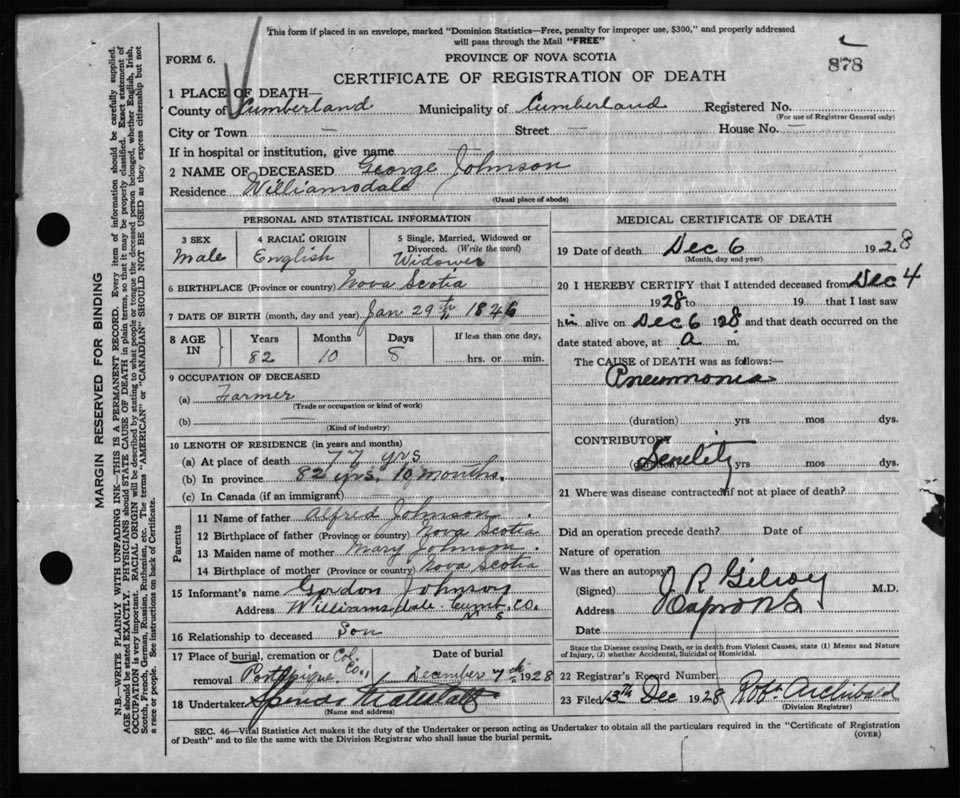 This form if placed in an envelope, marked "Dominion Statistics—Free, penalty for improper use, $300," and properly addressed
will pass through the Mail "FREE"
FORM 6.
PROVINCE OF NOVA SCOTIA
878
CERTIFICATE OF REGISTRATION OF DEATH
1 PLACE OF DEATH—
County of Cumberland Municipality of Cumberland Registered No.
(For use of Registrar General only)
City or Town — Street — House No. —
If in hospital or institution, give name
2 NAME OF DECEASED George Johnson
Residence Williamsdale
(Usual place of abode)
PERSONAL AND STATISTICAL INFORMATION
3 SEX
Male
4 RACIAL ORIGIN
English
5 Single, Married, Widowed or
Divorced. (Write the word)
Widower
6 BIRTHPLACE (Province or country) Nova Scotia
7 DATE OF BIRTH (month, day and year) Jan 29th 1846
8 AGE
IN
Years
82
Months
10
Days
8
If less than one day,
hrs. or min.
9 OCCUPATION OF DECEASED
(a) Farmer
(Trade or occupation or kind of work)
(b)
(Kind of industry)
10 LENGTH OF RESIDENCE (in years and months)
(a) At place of death 77 yrs
(b) In province 82 yrs. 10 months.
(c) In Canada (if an immigrant)
Parents
11 Name of father Alfred Johnson.
12 Birthplace of father (Province or country) Nova Scotia
13 Maiden name of mother Mary Johnson.
14 Birthplace of mother (Province or country) Nova Scotia
15 Informant's name Gordon Johnson
Address Williamsdale. Cumb. Co.
N S
16 Relationship to deceased Son
17 Place of burial, cremation or Col.
removal Portapique. Co.,
Date of burial
December 7th 1928
18 Undertaker
(Name and address)
MEDICAL CERTIFICATE OF DEATH
19 Date of death Dec 6 1928
(Month, day and year)
20 I HEREBY CERTIFY that I attended deceased from Dec 4
1928 to 19 that I last saw
him alive on Dec 6 1928 and that death occurred on the
date stated above, at a m.
The CAUSE of DEATH was as follows:—
Pneumonia
(duration) yrs mos dys.
CONTRIBUTORY
Senility
(duration) yrs mos dys.
21 Where was disease contracted if not at place of death?
Did an operation precede death? Date of
Nature of operation
Was there an autopsy
(Signed) J R Gilroy M.D.
Address Oxford NS
Date
State the Disease causing Death, or in death from Violent Causes, state (1) Means and Nature
of Injury, (2) whether Accidental, Suicidal or Homicidal.
22 Registrar's Record Number
23 Filed 13th Dec 1928 Robt. Archibald
(Division Registrar)
SEC. 46—Vital Statistics Act makes it the duty of the Undertaker or person acting as Undertaker to obtain all the particulars required in the "Certificate of Registration
of Death" and to file the same with the Division Registrar who shall issue the burial permit.
(OVER)
MARGIN RESERVED FOR BINDING
N.B.—WRITE PLAINLY WITH UNFADING INK—THIS IS A PERMANENT RECORD. Every items of information should be carefully supplied.
AGE should be stated EXACTLY. PHYSICIANS should STATE CAUSE OF DEATH in plain terms, so that it may be properly classified. Exact statement of
OCCUPATION is very important. RACIAL ORIGIN will be described by stating to what people or tongue the deceased person belonged, whether English, Irish,
Scotch, French, German, Russian, Ruthenian, etc. The terms "AMERICAN" or "CANADIAN" SHOULD NOT BE USED as they express citizenship but not
a race or people. See instructions on back of Certificate.